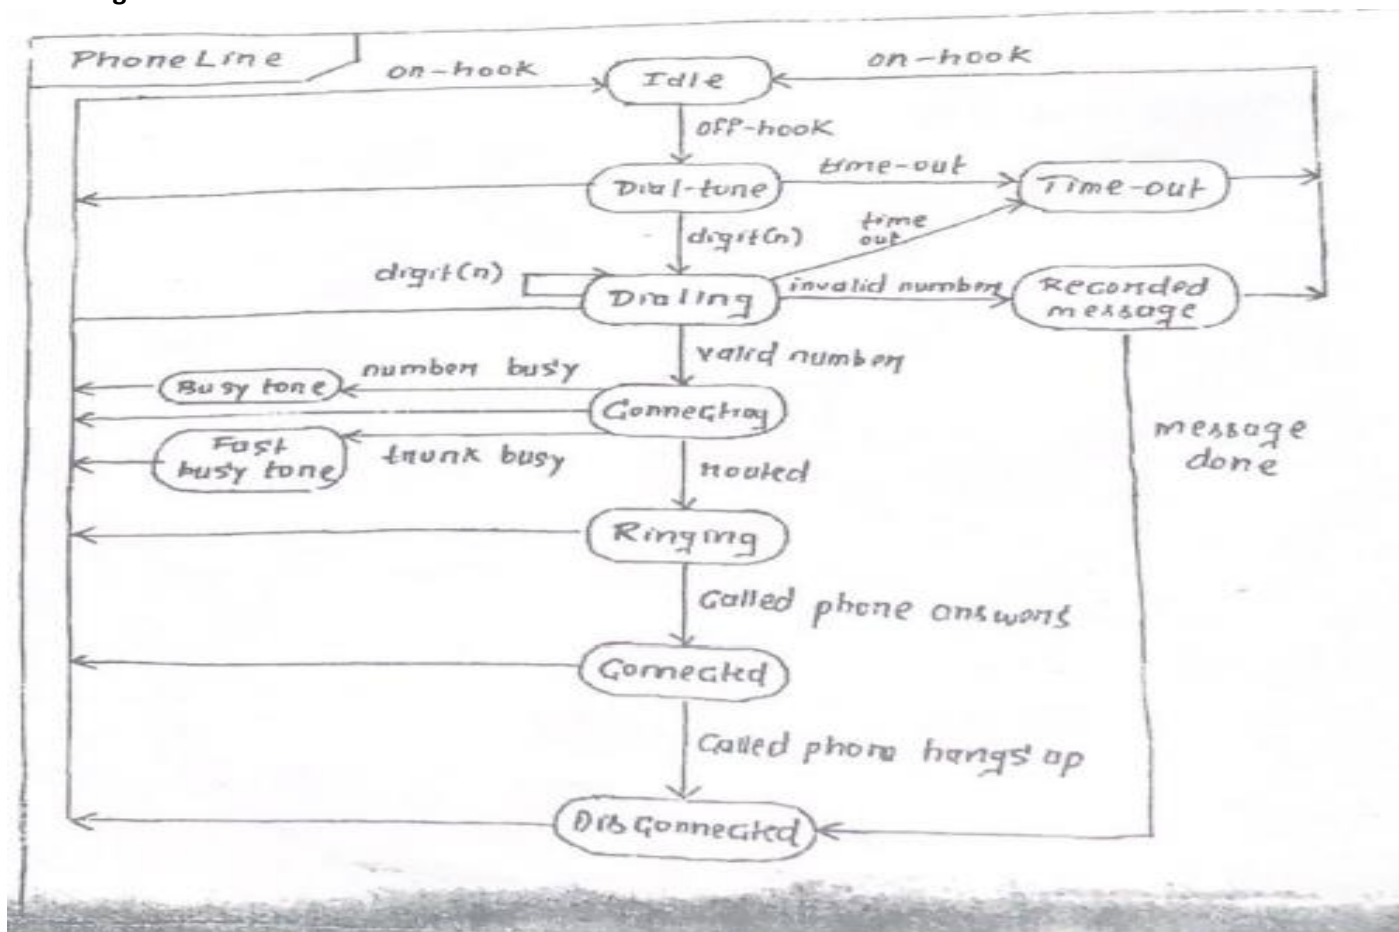 PhoneLine
on-hook
Idle
on-hook
off-hook
Dial-tone
time-out
Time-out
digit(n)
time
out
digit(n)
Dialing
invalid number
Recorded
message
valid number
number busy
Busy tone
Connecting
Fast
busy tone
trunk busy
routed
message
done
Ringing
Called phone answers
Connected
Called phone hangs up
Disconnected